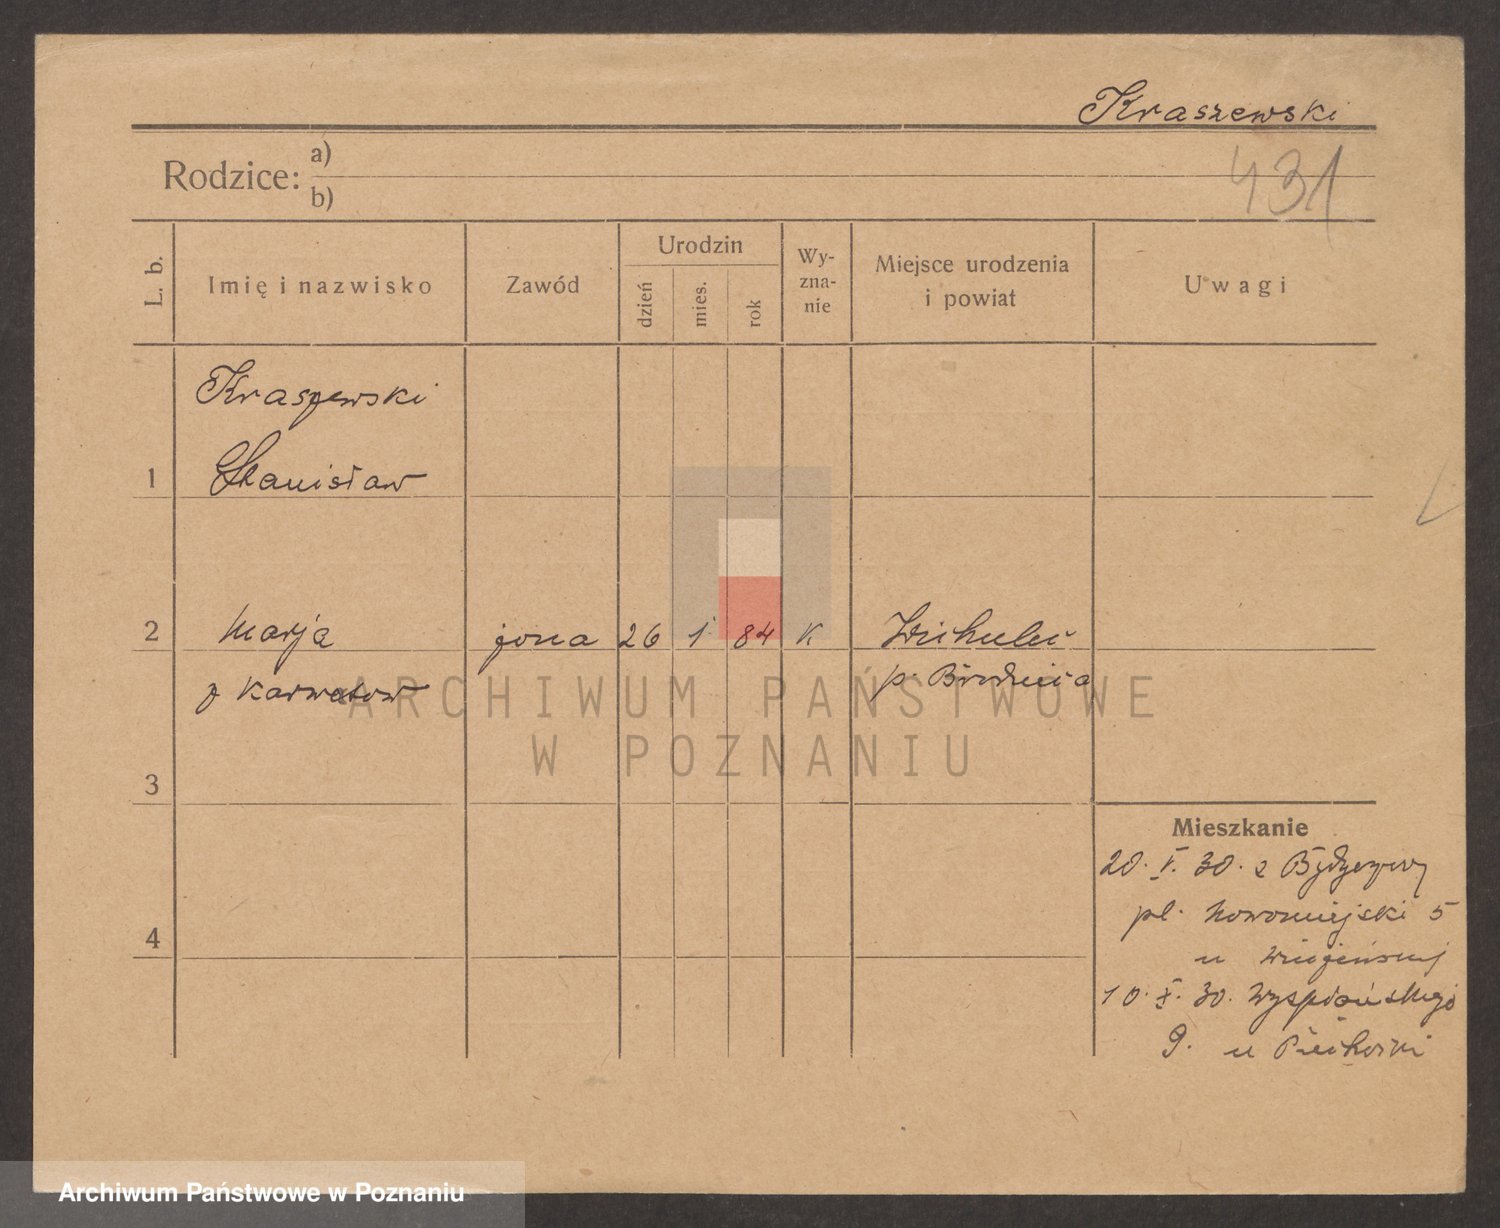 Kraszewski
431
Rodzice: a)
b)
L. b.
Imię i nazwisko
Zawód
Urodzin
dzień
mies.
rok
Wy-
zna-
nie
Miejsce urodzenia
i powiat
Uwagi
Kraszewski
1 Stanisław
2 Marja żona 26 1 84 K
z Karwatow p. Brodnica
ARCHIWUM PAŃSTWOWE
W POZNANIU
3
4
Mieszkanie
20. V. 30. z Bydgoszczy
pl. Nowomiejski 5
u
10. X. 30. Wyspiańskiego
9. u
Archiwum Państwowe w Poznaniu